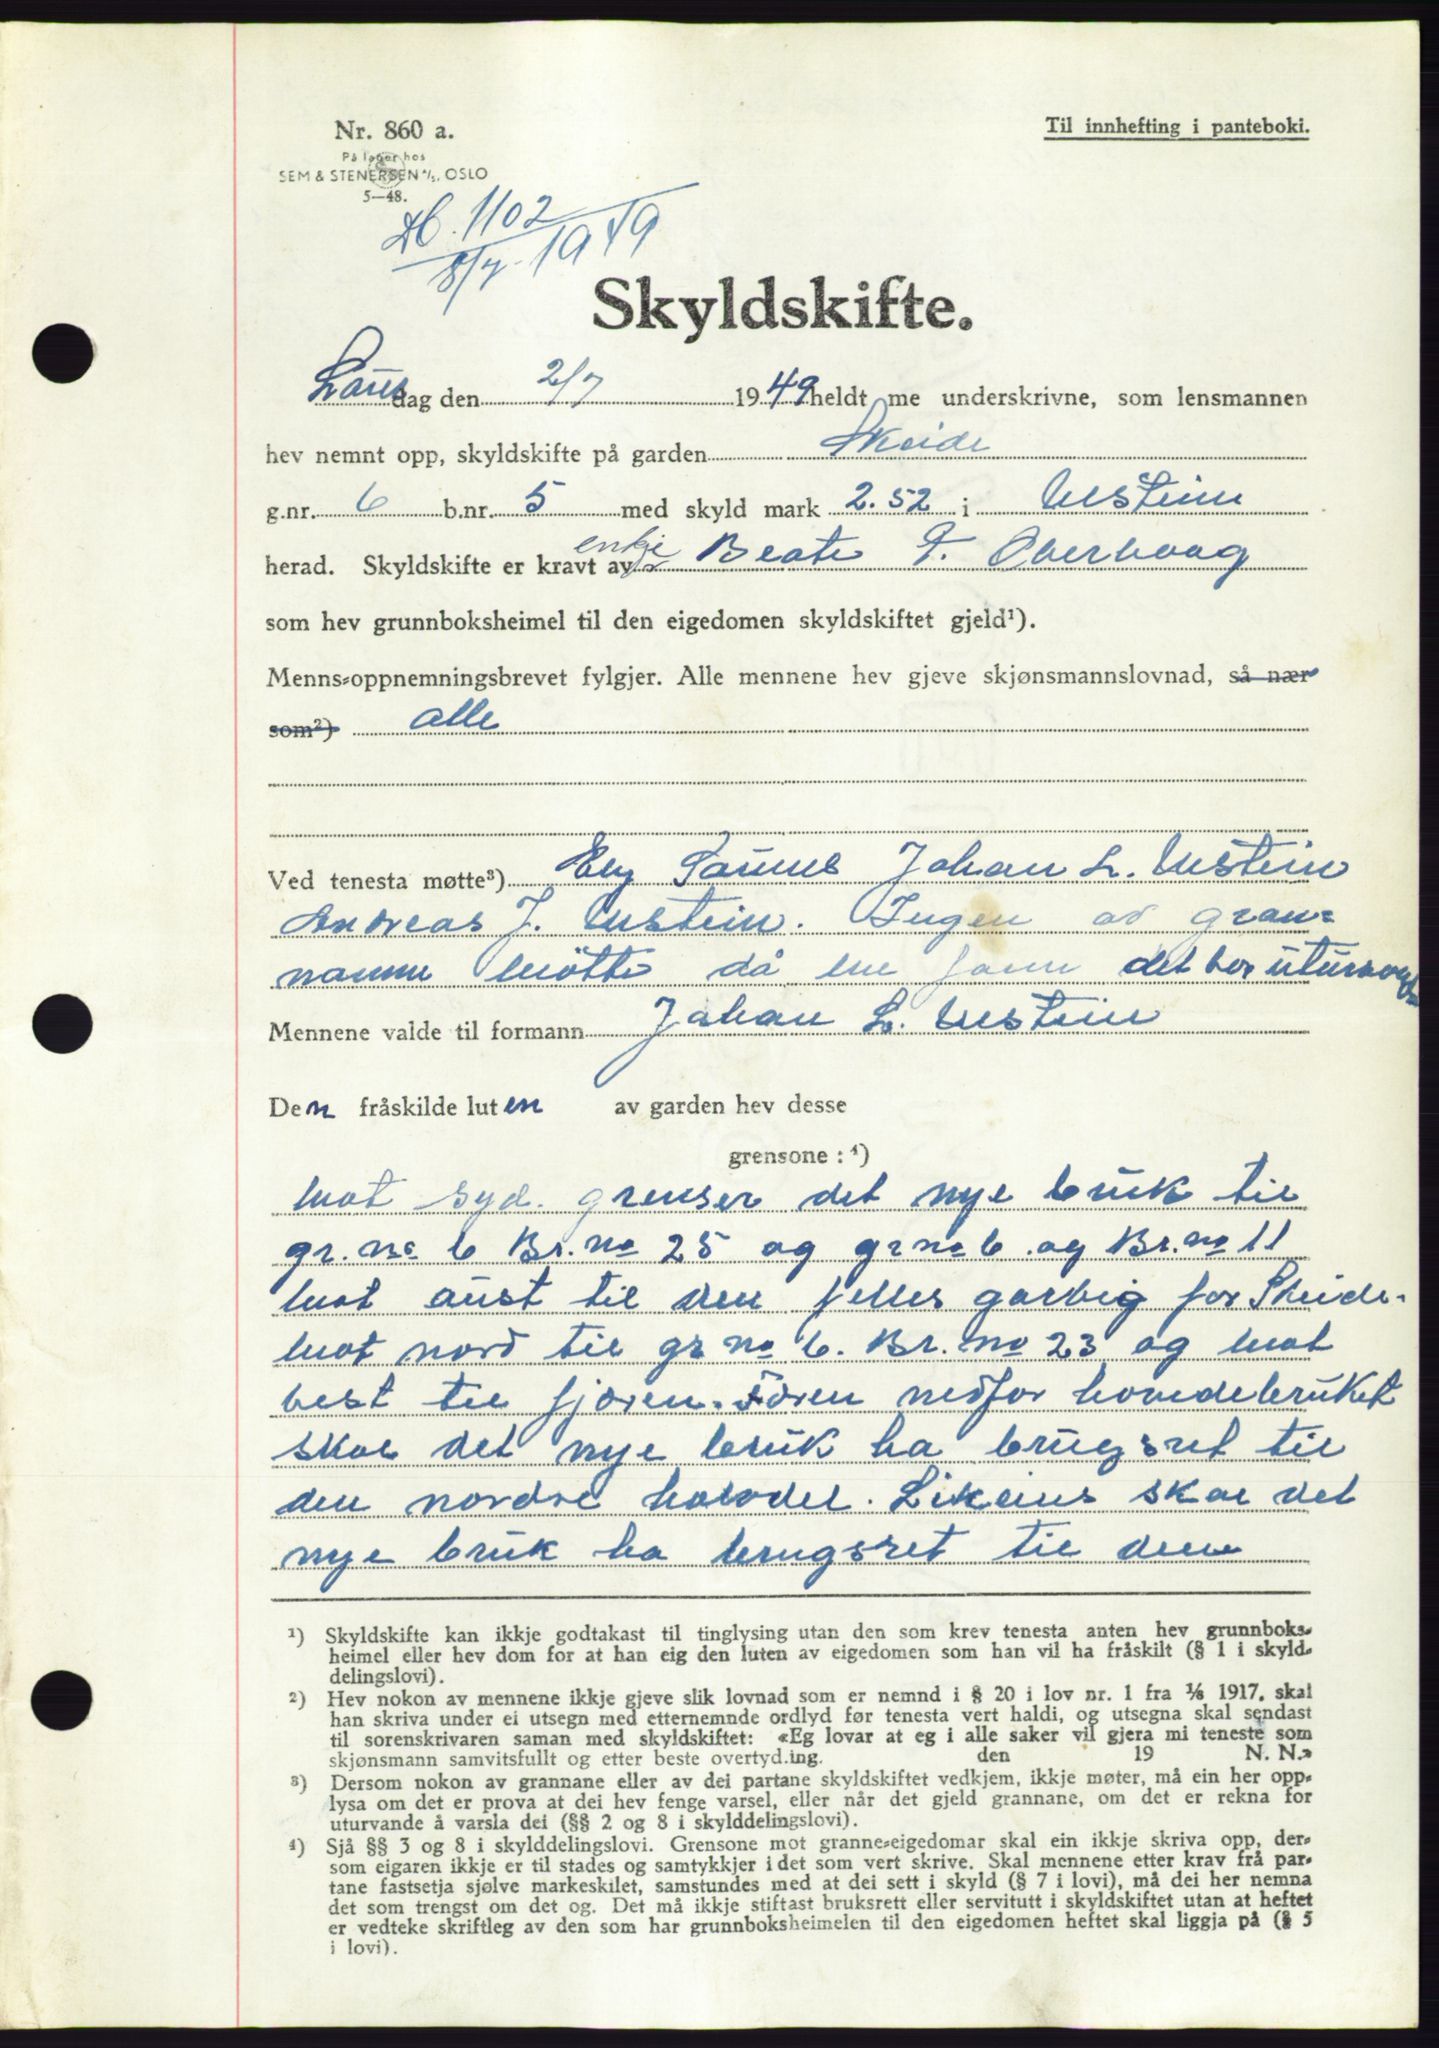 Nr. 860 a.
Til innhefting i panteboki.
På lager hos
SEM & STENERSEN A/S. OSLO
5—48.
Db. 1102
8/7 - 1949
Skyldskifte.
Laurs dag den 2/7 1949 heldt me underskrivne, som lensmannen
hev nemnt opp, skyldskifte på garden Skeide
g.nr. 6 b.nr. 5 med skyld mark 2.52 i Ulstein
enkje
herad. Skyldskifte er kravt av Beate T. Overvaag
som hev grunnboksheimel til den eigedomen skyldskiftet gjeld¹).
Menns-oppnemningsbrevet fylgjer. Alle mennene hev gjeve skjønsmannslovnad, så nær
som²) alle
Ved tenesta møtte³) Johan L. Ulstein
Andreas J. Ulstein. Ingen av gran=
nanne møtte då me fann det for uturvande
Mennene valde til formann Johan L. Ulstein
Den fråskilde luten av garden hev desse
grensone : ⁴)
Mot syd. grenser det nye bruk til
gr. no 6 Br. no 25 og gr no 6 og Br. no 11
Mot aust til den felles garveg for Skeide.
Mot nord til gr no 6. Br. no 23 og mot
vest til fjøren. Føren nedfor hovedebruket
skal det nye bruk ha brugsret til
den nordre halvdel. Likeins skal det
nye bruk ha brugsret til den
¹) Skyldskifte kan ikkje godtakast til tinglysing utan den som krev tenesta anten hev grunnboks-
heimel eller hev dom for at han eig den luten av eigedomen som han vil ha fråskilt (§ 1 i skyld-
delingslovi).
²) Hev nokon av mennene ikkje gjeve slik lovnad som er nemnd i § 20 i lov nr. 1 fra 1/6 1917, skal
han skriva under ei utsegn med etternemnde ordlyd før tenesta vert haldi, og utsegna skal sendast
til sorenskrivaren saman med skyldskiftet: «Eg lovar at eg i alle saker vil gjera mi teneste som
skjønsmann samvitsfullt og etter beste overtyding. den 19 N. N.»
³) Dersom nokon av grannane eller av dei partane skyldskiftet vedkjem, ikkje møter, må ein her opp-
lysa om det er prova at dei hev fenge varsel, eller når det gjeld grannane, om det er rekna for
uturvande å varsla dei (§§ 2 og 8 i skylddelingslovi).
⁴) Sjå §§ 3 og 8 i skylddelingslovi. Grensone mot granne-eigedomar skal ein ikkje skriva opp, der-
som eigaren ikkje er til stades og samtykkjer i det som vert skrive. Skal mennene etter krav frå par-
tane fastsetja sjølve markeskilet, samstundes med at dei sett i skyld (§ 7 i lovi), må dei her nemna
det som trengst om det og. Det må ikkje stiftast bruksrett eller servitutt i skyldskiftet utan at heftet
er vedteke skriftleg av den som har grunnboksheimelen til den eigedomen heftet skal liggja på (§ 5
i lovi).